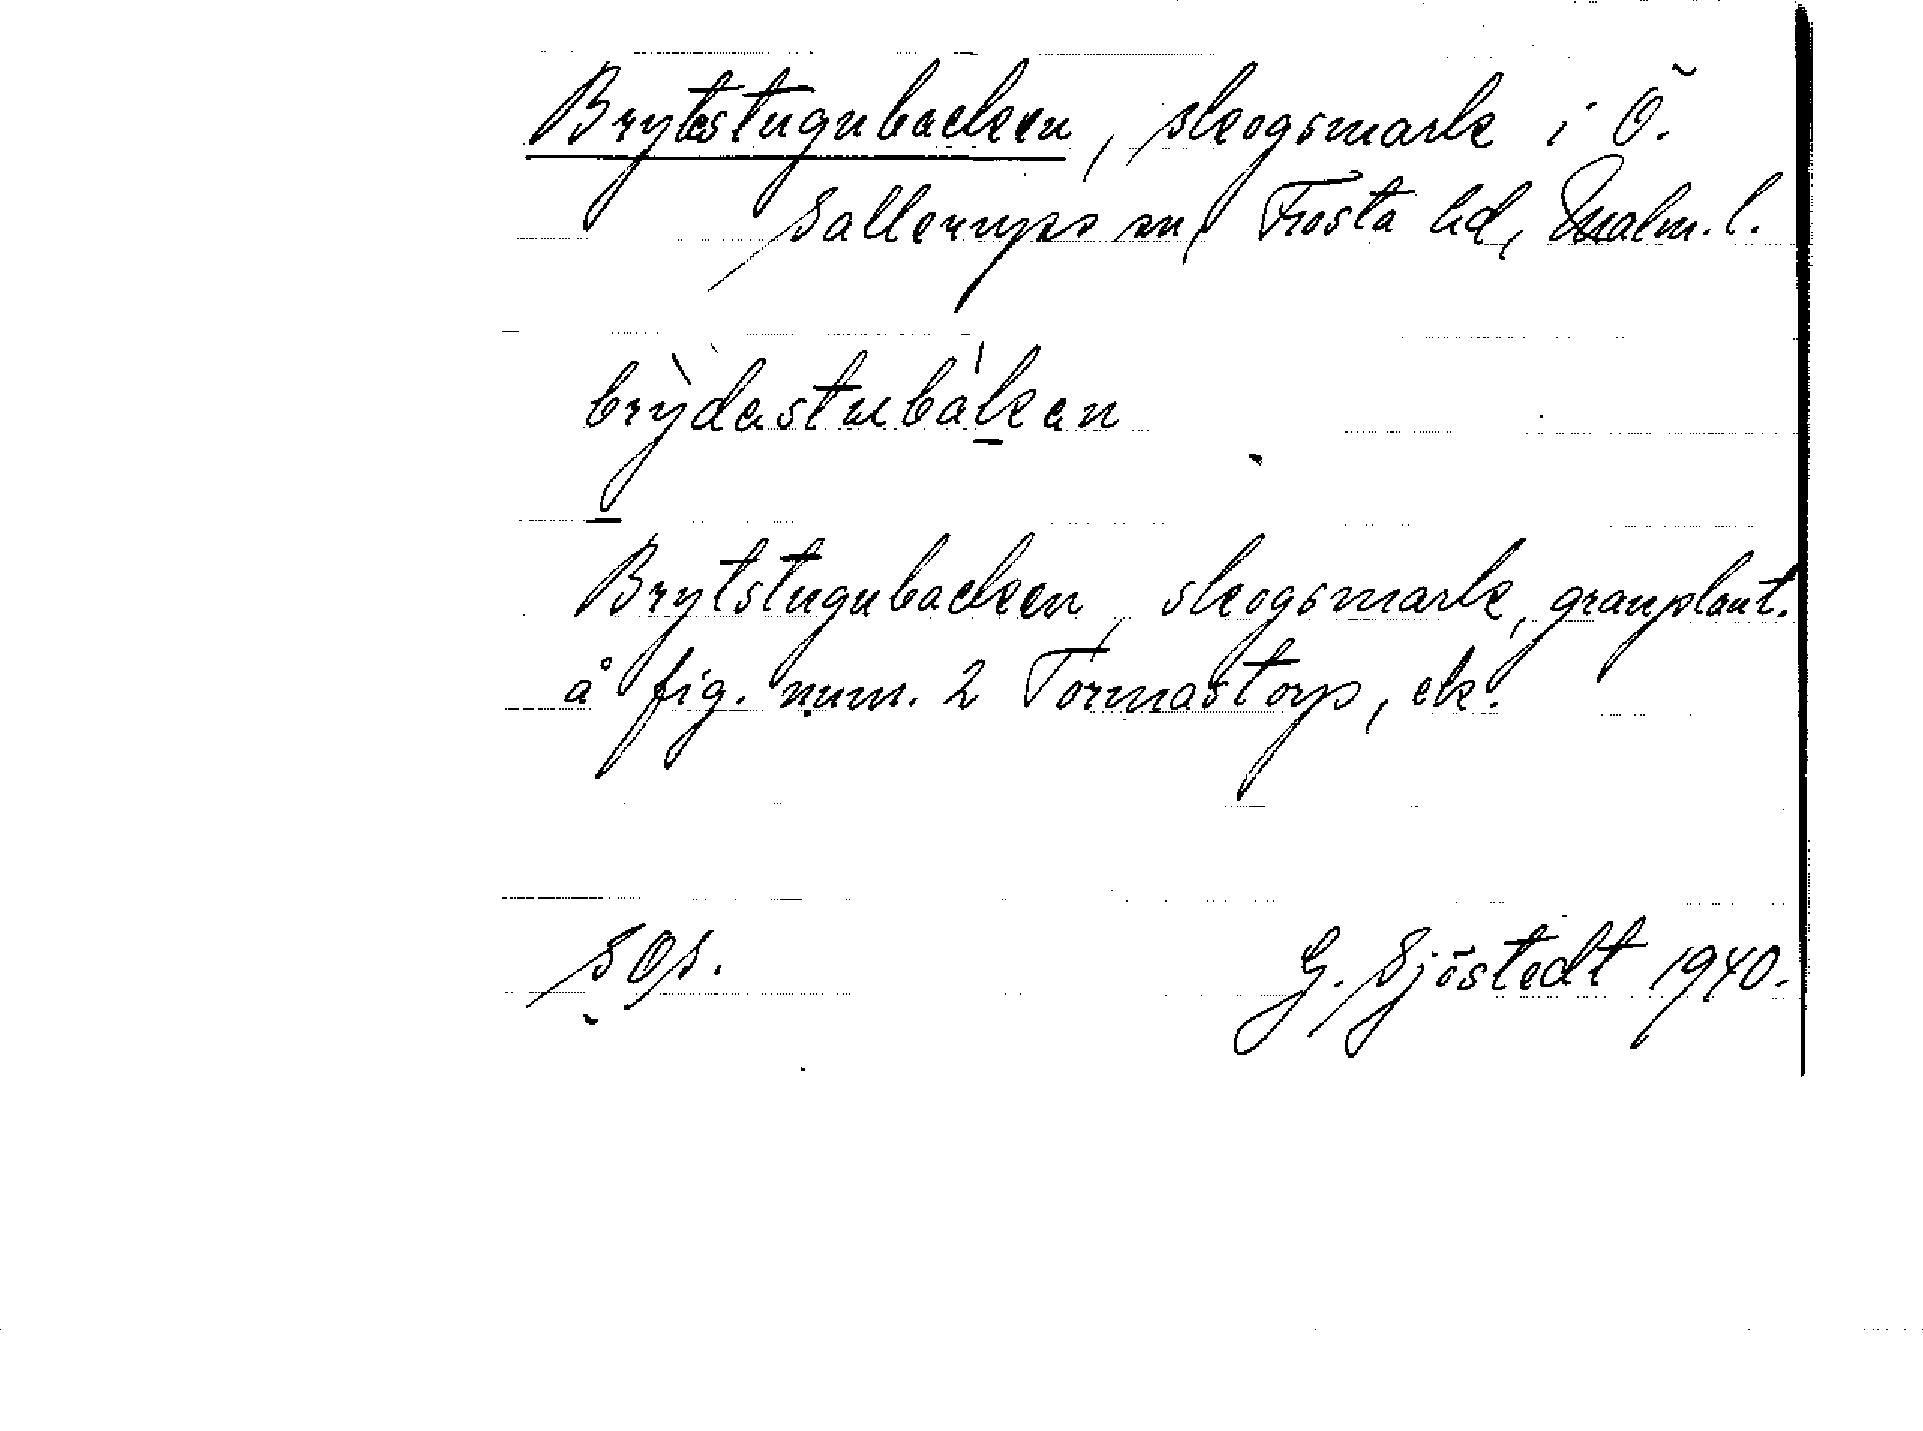 Brytestugubacken, skogsmark i Ö.
Sallerups sn, Frosta hd, Malm. l.
brỳdastubákan
Brytstugubacken, skogsmark, granplant.
å fig. num. 2 Tormastorp, ek.
SOs.
G. Sjöstedt 1940.